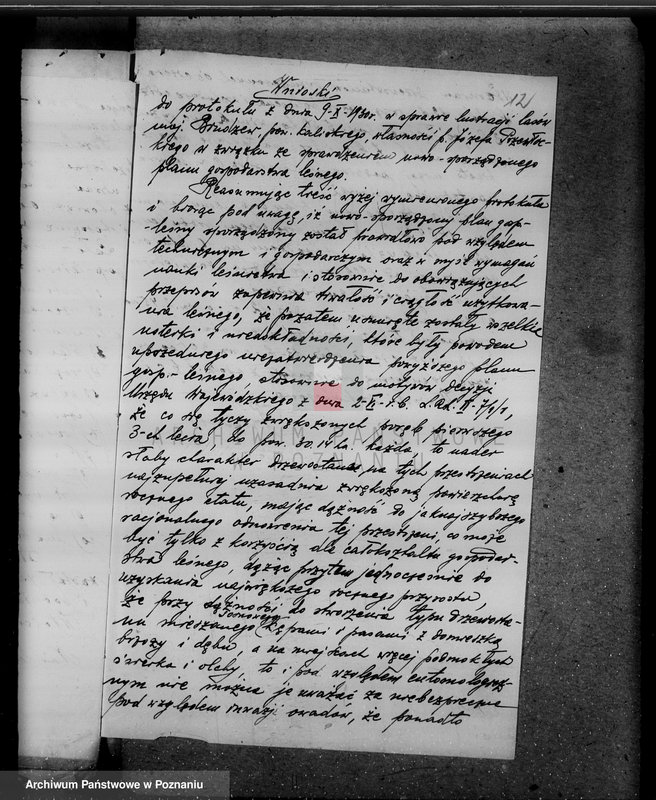 12
Wnioski
do protokułu z dnia 9-X-1930r. w sprawie lustracji lasów
maj. Brudzew, pow. kaliskiego, własności p. Józefa
kiego w związku ze sprawdzeniem nowo-sporządzonego
planu gospodarstwa leśnego.
Reasumując treść wyżej wymienionego protokułu
i biorąc pod uwagę, iż nowo-sporządzony plan gosp-
leśny sporządzony został prawidłowo pod względem
technicznym i gospodarczym oraz w myśl wymagań
nauki leśnictwa i stosownie do obowiązujących
przepisów zapewnia trwałość i ciągłość użytkowa-
nia leśnego, że pozatem usunięte zostały wszelkie
usterki i niedokładności, które były powodem
uprzedniego niezatwierdzenia powyższego planu
gosp.-leśnego, stosownie do motywów decyzji
Urzędu Wojewódzkiego z dnia 2-VI-r.b.
że co się tyczy zwiększonych poręb pierwszego
3-ch lecia do pow. 30,14 ha. każda, to nader
słaby charakter drzewostanu, na tych przestrzeniach
najzupełniej uzasadnia zwiększoną powierzchnię
rocznego etatu, mając dążność do jaknajszybszego
racjonalnego odnowienia tej przestrzeni, co może
być tylko z korzyścią dla całokształtu gospodar-
stwa leśnego, dążąc przytem jednocześnie do
uzyskania największego rocznego przyrostu,
że przy dążności do stworzenia typu drzewosta-
nu mieszanego kępami i pasami z domieszką
brzozy i dębu, a na miejscach więcej podmokłych
świerka i olchy, to i pod względem entomologicz-
nym nie można je uważać za niebezpieczne
pod względem inwazji owadów, że ponadto
ARCHIWUM PAŃSTWOWE
W POZNANIU
Archiwum Państwowe w Poznaniu